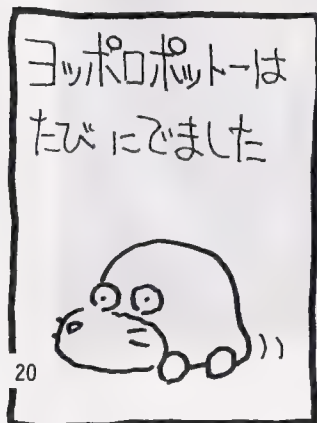 ヨッポロポットーは
たびにでました
20